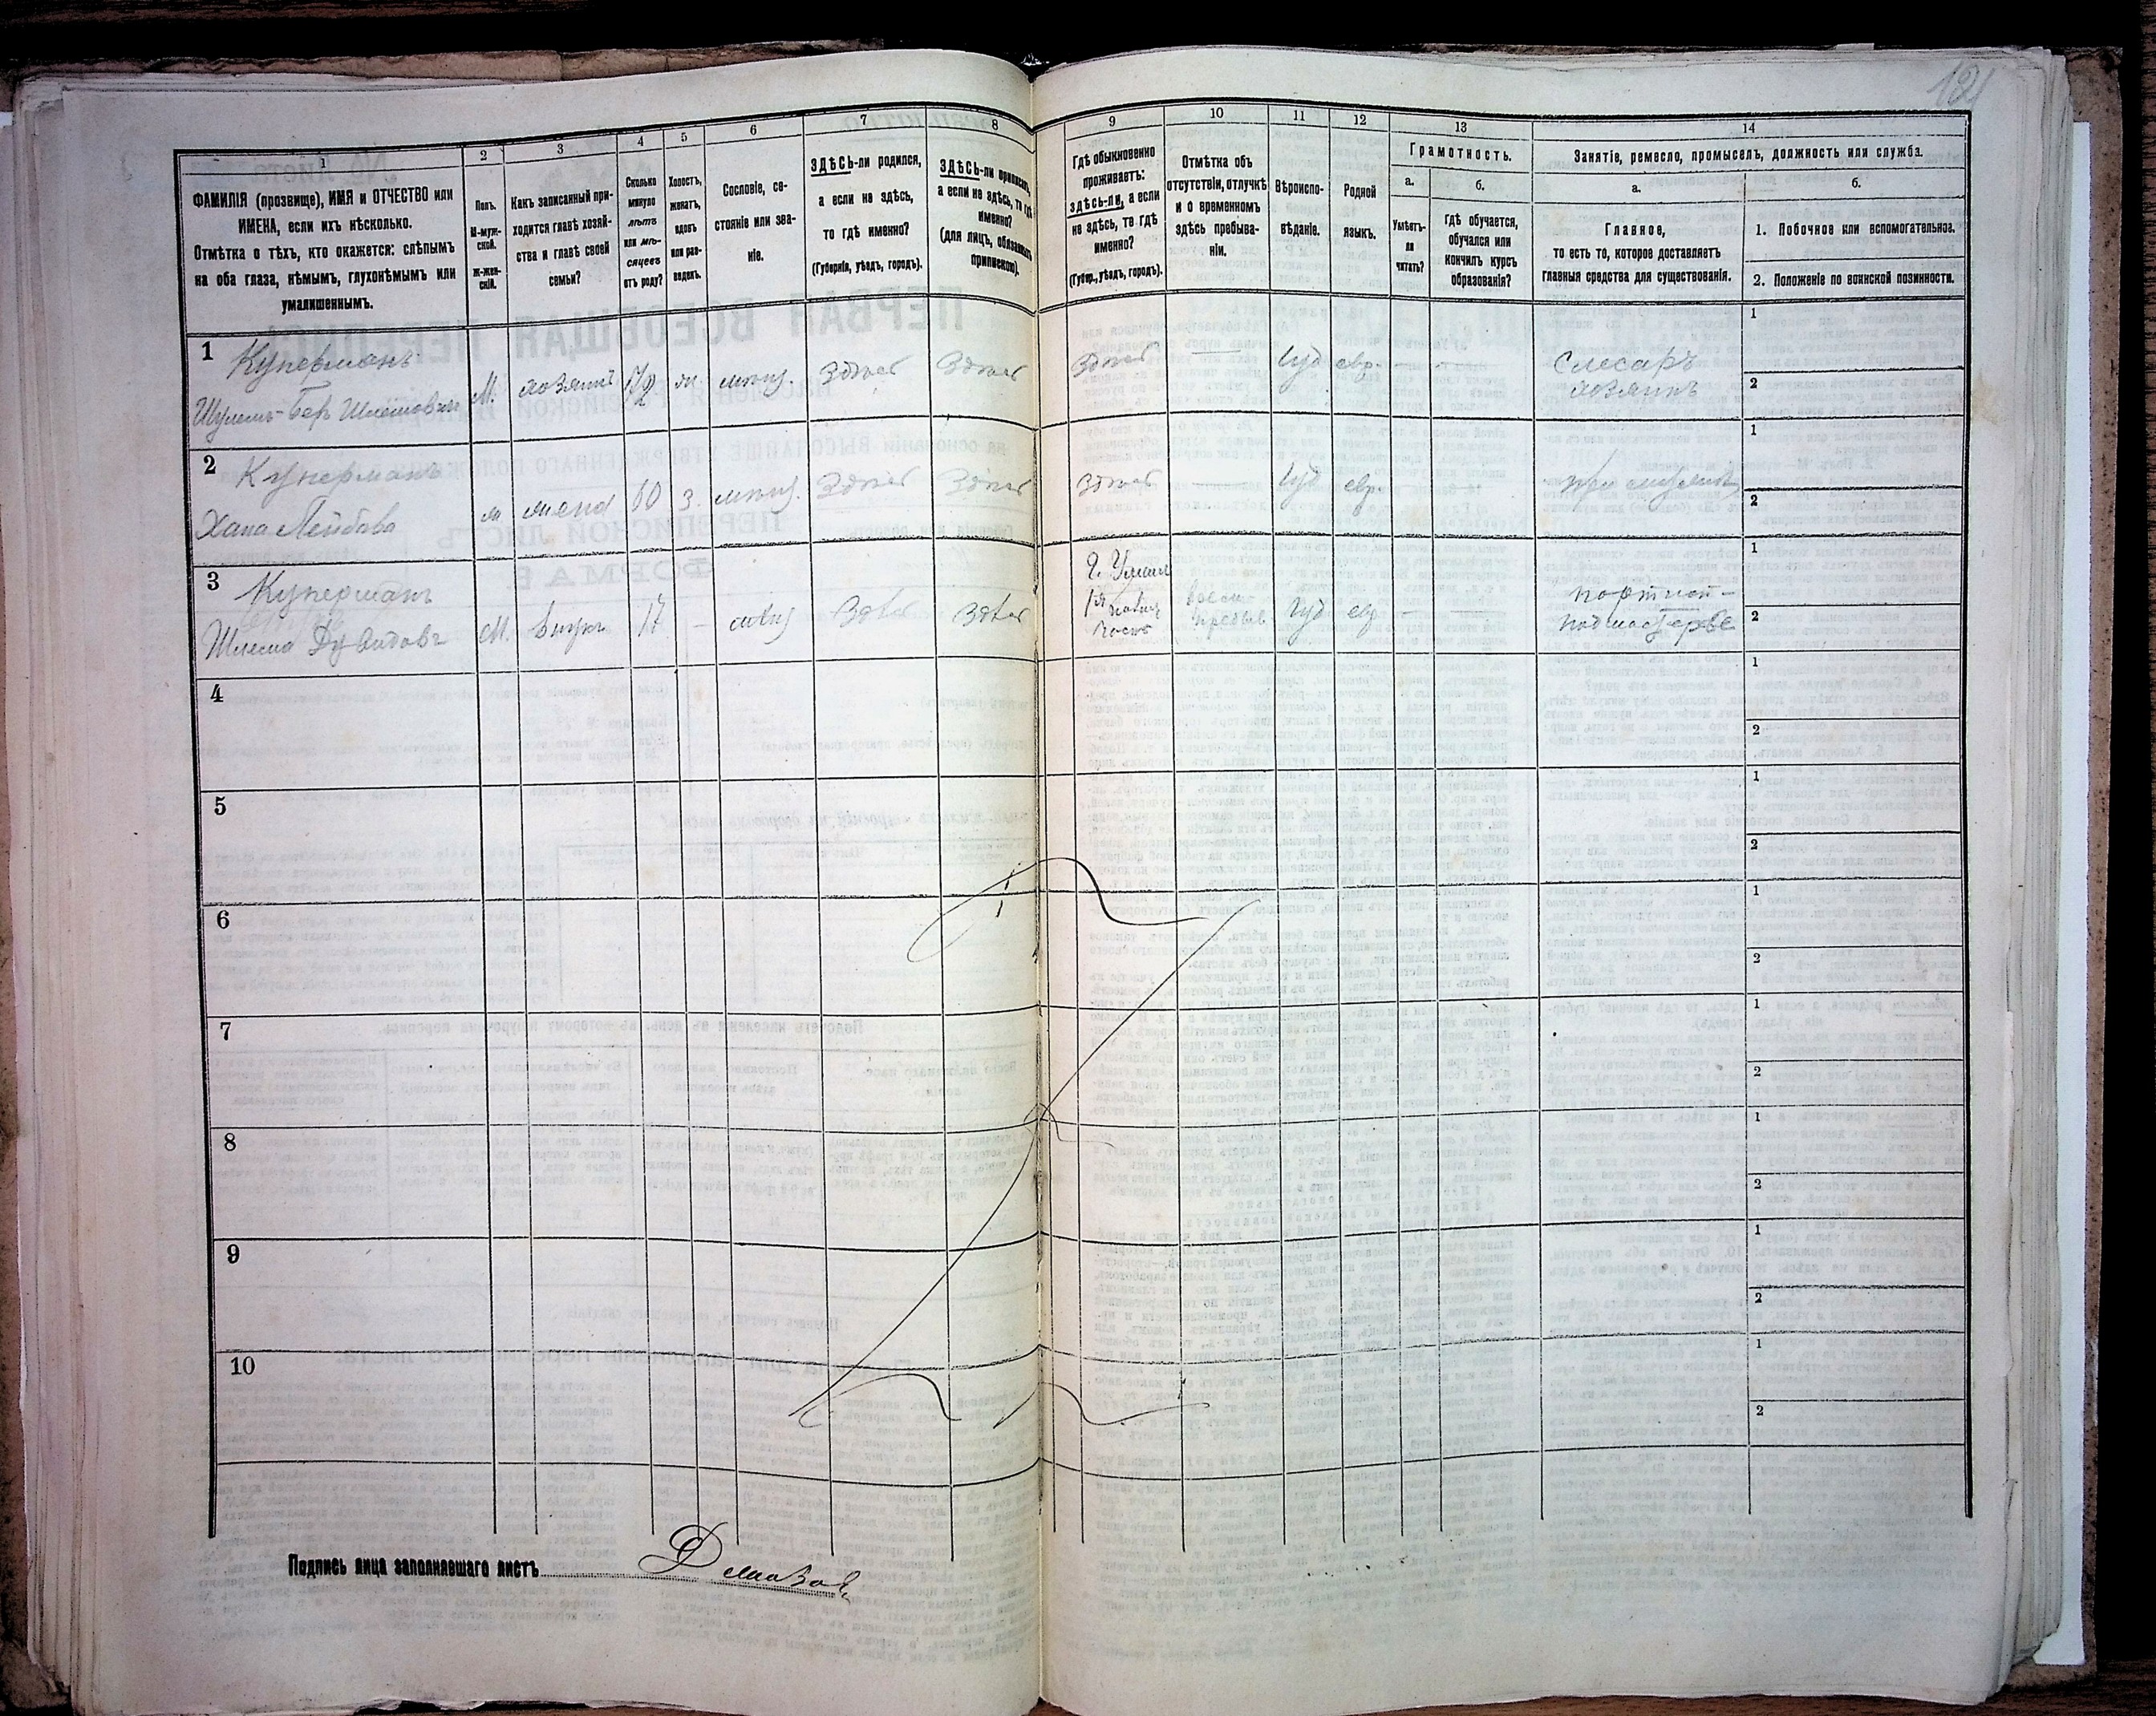 121
1
2
3
4
5
6
7
8
9
10
11
12
13
14
ФАМИЛІЯ (прозвище), ИМЯ и ОТЧЕСТВО или
ИМЕНА, если ихъ нѣсколько.
Отмѣтка о тѣхъ, кто окажется: слѣпымъ
на оба глаза, нѣмымъ, глухонѣмымъ или
умалишеннымъ.
Полъ.
М-муж-
ской.
Ж-жен-
скій.
Какъ записанный при-
ходится главѣ хозяй-
ства и главѣ своей
семьи?
Сколько
минуло
лѣтъ
или мѣ-
сяцевъ
отъ роду?
Холостъ,
женатъ,
вдовъ
или раз-
веденъ.
Сословіе, со-
стояніе или зва-
ніе.
ЗДѢСЬ-ли родился,
а если не здѣсь,
то гдѣ именно?
(Губернія, уѣздъ, городъ).
ЗДѢСЬ-ли приписанъ,
а если не здѣсь, то гдѣ
именно?
(для лицъ, обязанныхъ
припискою).
Гдѣ обыкновенно
проживаетъ:
здѣсь-ли, а если
не здѣсь, то гдѣ
именно?
(Губер., уѣздъ, городъ).
Отмѣтка объ
отсутствіи, отлучкѣ
и о временномъ
здѣсь пребыва-
ніи.
Вѣроиспо-
вѣданіе.
Родной
языкъ.
Грамотность.
а.
Умѣетъ-
ли
читать?
б.
гдѣ обучается,
обучался или
кончилъ курсъ
образованія?
Занятіе, ремесло, промыселъ, должность или служба.
а.
Главное,
то есть то, которое доставляетъ
главныя средства для существованія.
б.
1. Побочное или вспомогательное.
2. Положеніе по воинской повинности.
1
Куперманъ
Шулемъ-Беръ
М.
хозяинъ
ж.
мѣщ.
Здѣсь
Здѣсь
Здѣсь
—
Іуд
евр.
—
—
Слесарь
хозяинъ
1
2
2
Куперманъ
Хана Лейбова
ж
жена
60
з.
мѣщ.
Здѣсь
Здѣсь
Здѣсь
—
Іуд
евр.
При мужѣ
1
2
3
Куперманъ
Шлема Дувидовъ
М.
внукъ
17
-
мѣщ
Здѣсь
Здѣсь
г. Умань
Іуд
евр
—
—
портной -
подмастерье
1
2
4
1
2
5
1
2
6
1
2
7
1
2
8
1
2
9
1
2
10
1
2
Подпись лица заполнявшаго листъ